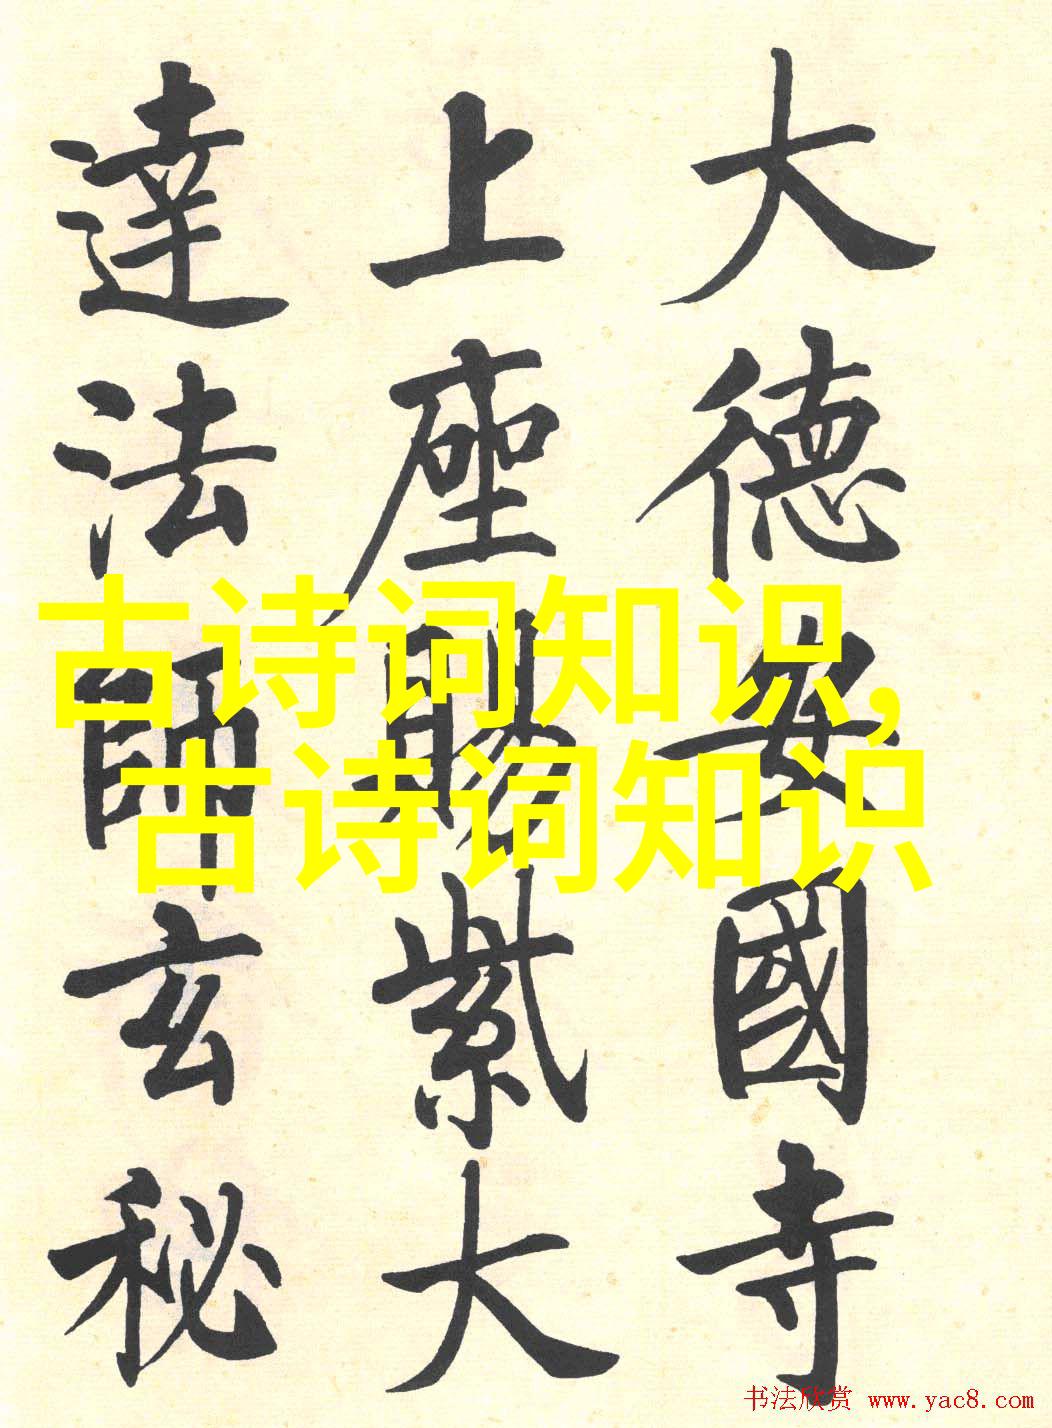 大德安國寺
上座賜紫大
達法師玄秘
古诗词知识,
古诗词知识
书法欣赏 www.yac8.com